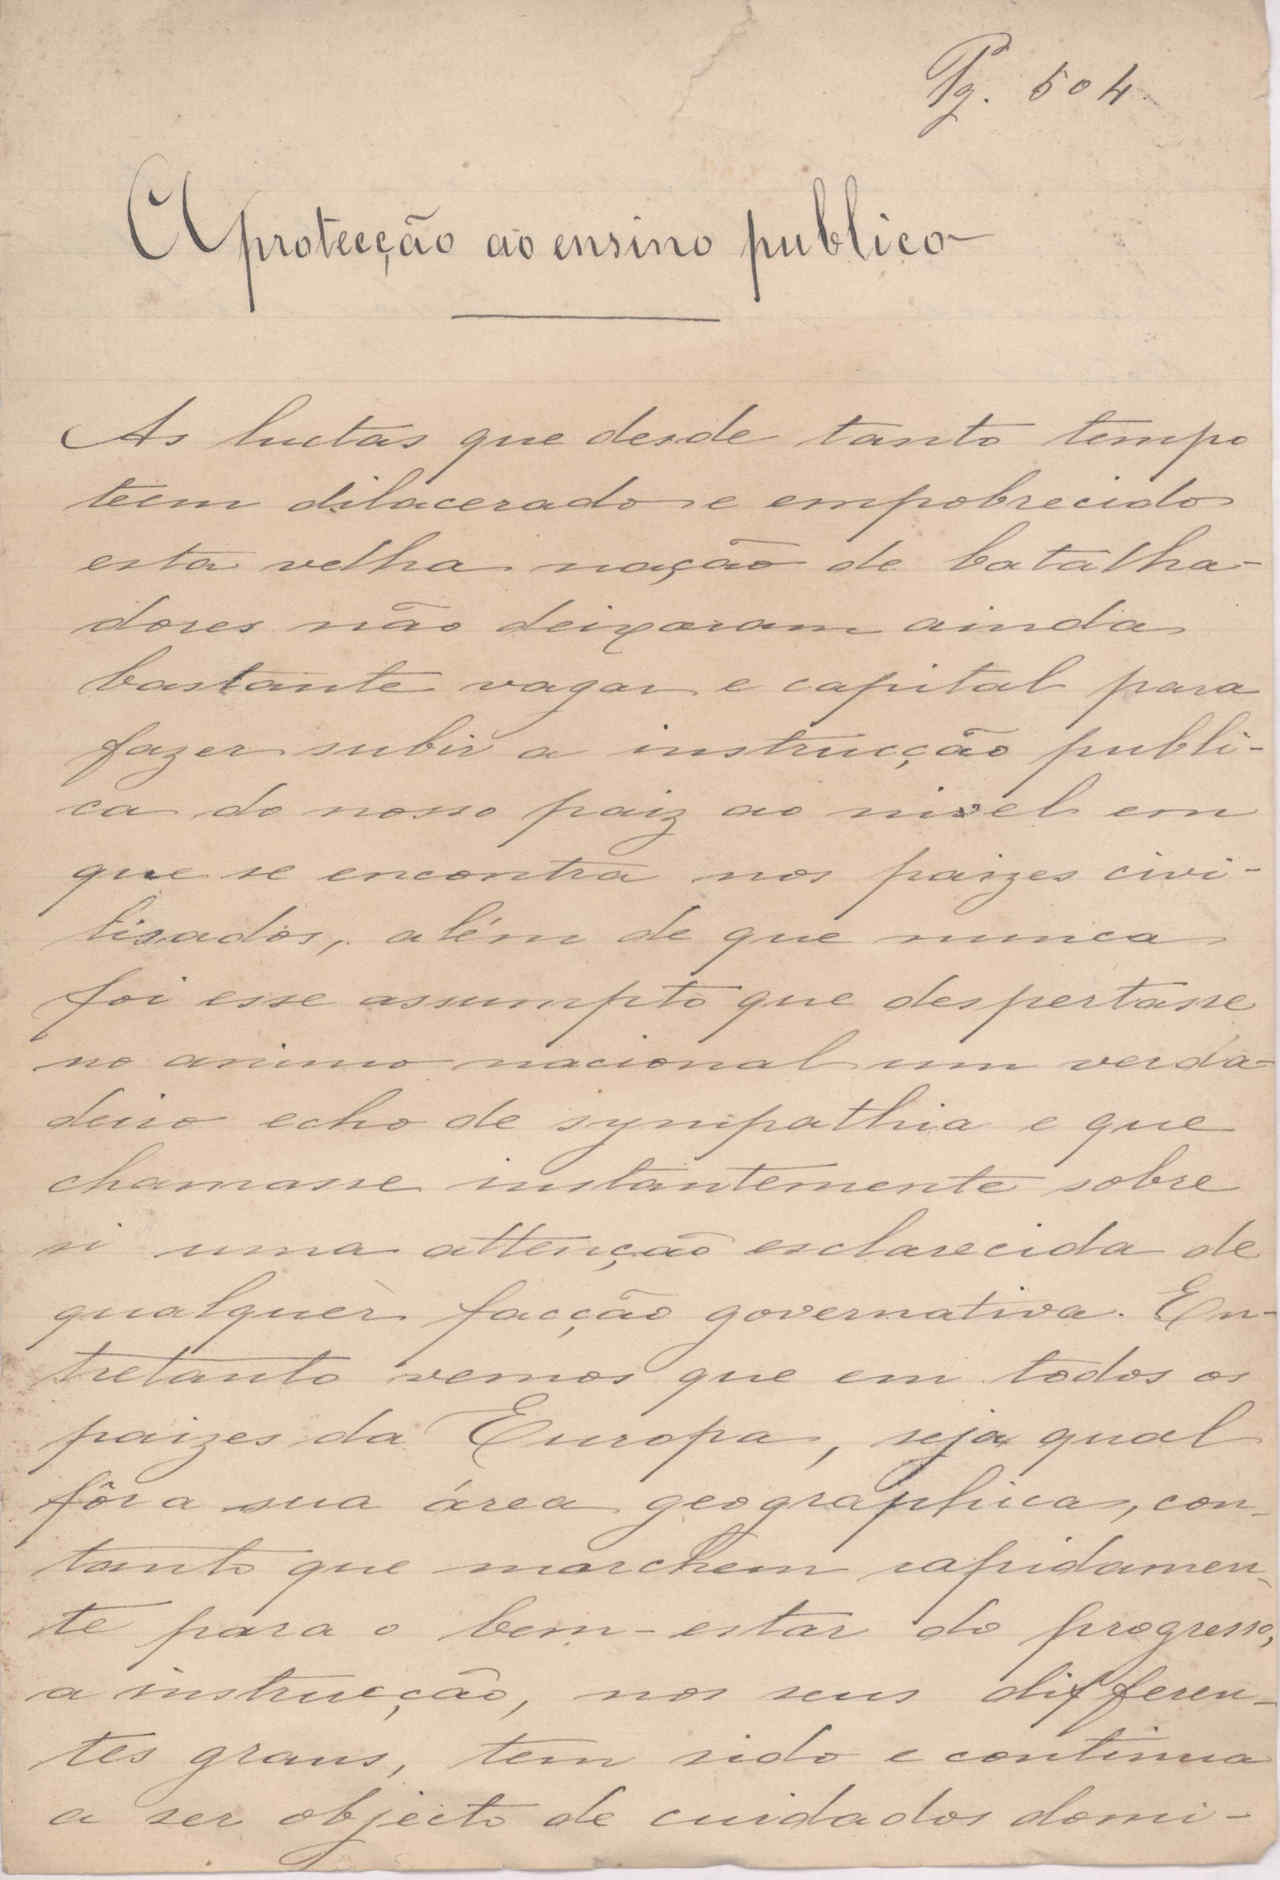 Pg. 504
A protecção ao ensino publico
As luctas que desde tanto tempo
teem dilacerado e empobrecido
esta velha nação de batalha-
dores não deixaram ainda
bastante vagar e capital para
fazer subir a instrucção publi-
ca do nosso paiz ao nivel em
que se encontra nos paizes civi-
lisados, além de que nunca
foi esse assumpto que despertasse
no animo nacional um verda-
deiro echo de sympathia e que
chamasse instantemente sobre
si uma attenção esclarecida de
qualquer facção governativa. En-
tretanto vemos que em todos os
paizes da Europa, seja qual
fôr a sua área geographica, con-
tanto que marchem rapidamen-
te para o bem-estar do progresso,
a instrucção, nos seus differen-
tes graus, tem sido e continua
a ser objecto de cuidados domi-